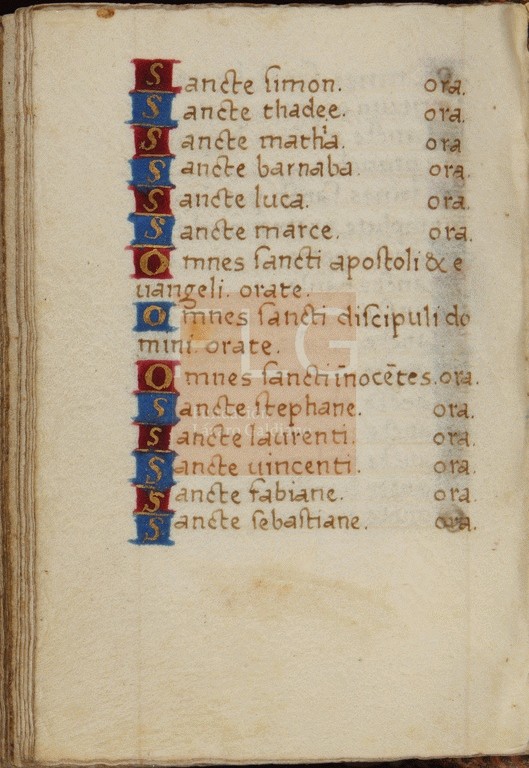 Sancte simon. ora.
Sancte thadee. ora.
Sancte mathia. ora
Sancte barnaba. ora.
Sancte luca. ora.
Sancte marce. ora.
Omnes sancti apostoli & e
uangeli. orate.
Omnes sancti discipuli do
mini orate.
Omnes sancti īnocētes. ora.
Sancte stephane. ora.
Sancte laurenti. ora.
Sancte uincenti. ora.
Sancte fabiane. ora.
Sancte sebastiane. ora.
FLG
Lázaro Galdiano